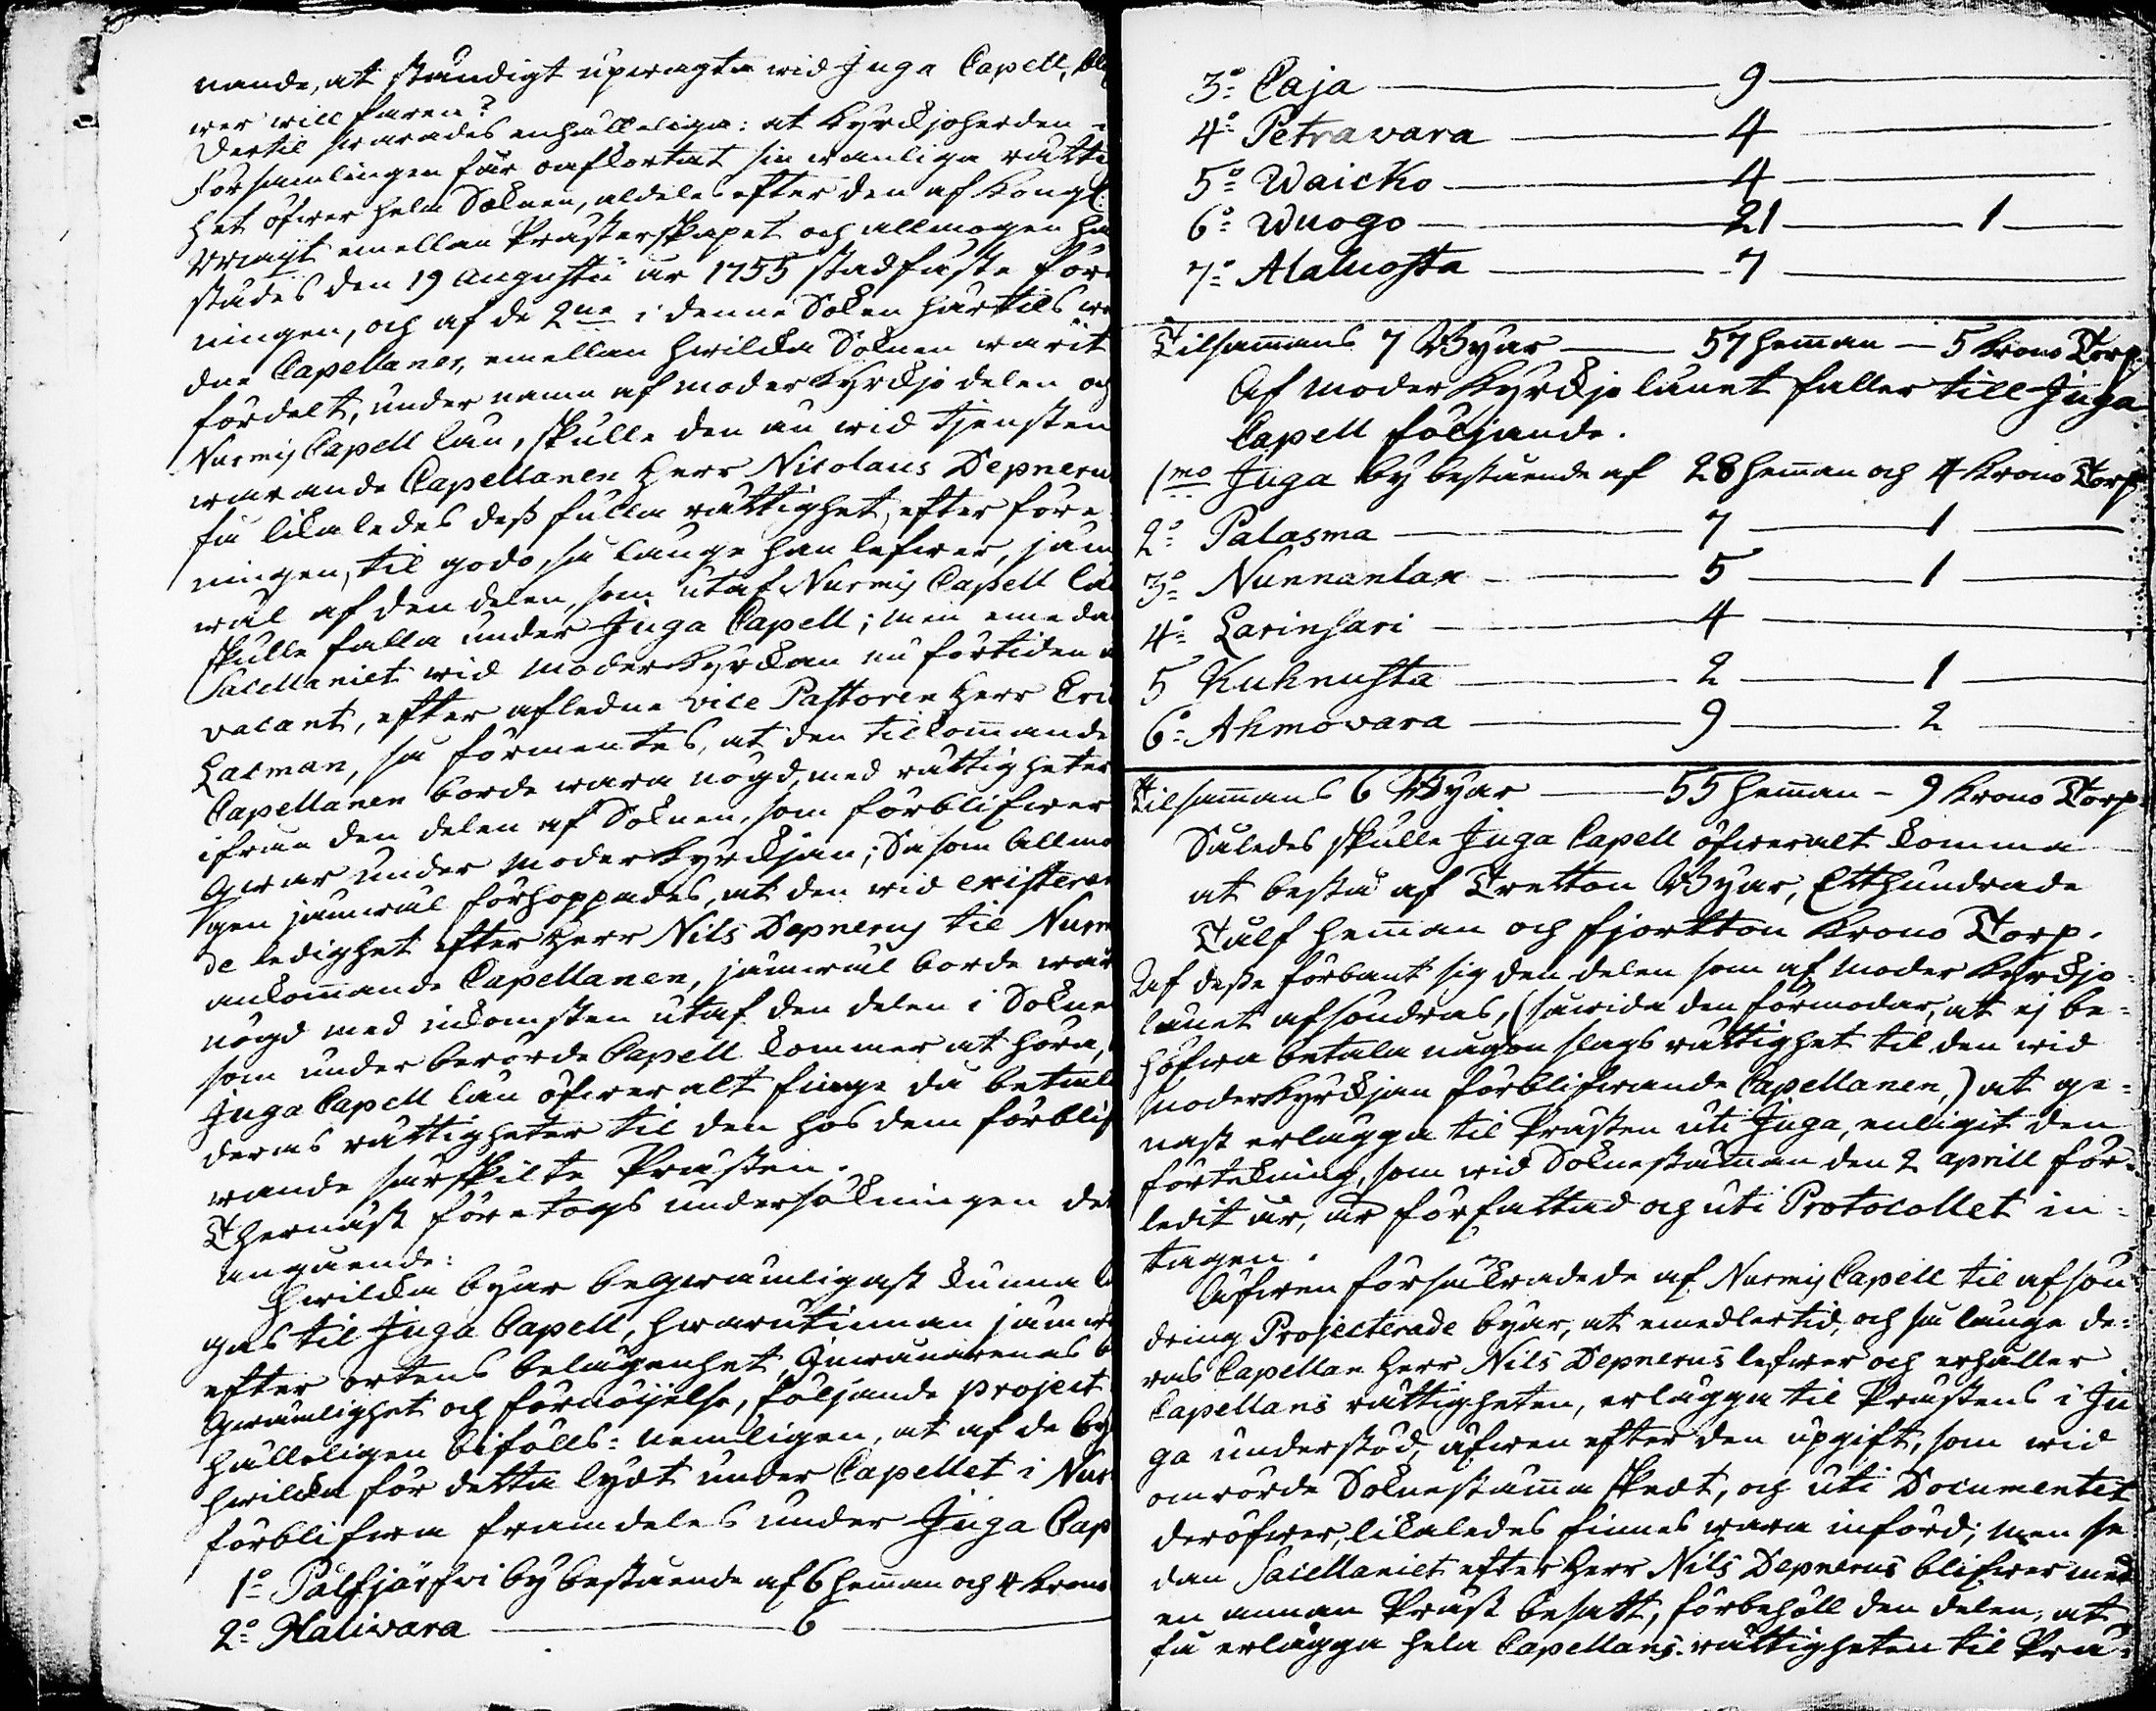 nande, at ständigt upwagta wid Juga Capell, 
wer will faren?
Dertil swarades enhälleliga: at Kyrckjoherden
Församlingen får oafkortat sin wanliga rättig
het öfwer hela Soknen, aldeles efter den af Kongl:
Wmagt emellan Prästerskapet och allmogen här
städes den 19 Augustii år 1755 stadfäste före
ningen, och af de 2ne i denna Sokn härtils wa
dne Capellaner, emellan hwilcka Soknen warit
fördelt, under namn af moder Kyrckjo delen och
Nurmis Capell län, skulle den nu wid tjensten
warande Capellanen Herr Nicolaus Depnerus
få likaledes dess fulla rättighet, efter före
ningen, til godo, så länge han lefwer, jäm
wäl af den delen, som utaf Nurmis Capell lä
skulle falla under Juga Capell; men emeda
Sacellaniet wid moder Kyrckan nu förtiden 
vacant, efter afledne vice Pastoren Herr Eric
Lacman, så förmentes, at den tilkommande
Capellanen borde wara nögd, med rättigheter
ifrån den delen af Soknen, som förblifwer
qwar under moder Kyrckjan; Så som Allmo
gen jämwäl förhoppades, at den wid existeran
de ledighet efter Herr Nils Depnerus til Nurm
ankommande Capellanen, jämwäl borde war
nögd med inkomsten utaf den delen i Sokne
som under berörde Capell kommer at höra,
Juga Capell län öfwer alt finge då betal
deras rättigheter til den hos dem förblif
wande särskilte Prästen.
Thernäst företogs undersökningen det
angående:
Hwilcka byar beqwämligast kunna 
gas til Juga Capell, hwarutinnan jämw
efter ortens belägenhet, Inwånarenas b
qwämlighet och förnöijelse, följande project
hälleligen bifölls: nemligen, at af de by
hwilcka för detta lydt under Capellet i Nur
förblifwa framdeles under Juga Cap
1º Palfjärfwi by bestående af 6 heman och 4 Krono
2º Haliwara — 6 —
3º Caja — 9 —
4º Petravara — 4 —
5º Waicko — 4 —
6º Wuogo — 21 — 1 —
7º Alaluosta — 7 —
Tilsamans 7 Byar — 57 heman — 5 Krono Torp
Af moder Kyrckjo länet faller till Juga
Capell följande.
1mo Juga by bestående af 28 heman och 4 Krono Torp
2º Palasma — 7 — 1 —
3º Nunnanlax — 5 — 1 —
4º Larinsari — 4 —
5 Kuhnusta — 2 — 1 —
6º Ahmovara — 9 — 2 —
Tilsamans 6 Byar — 55 heman — 9 Krono Torp
Således skulle Juga Capell öfweralt komma
at bestå af Tretton Byar, Etthundrade
Tålf heman och fjortton Krono Torp.
Af desse förbant sig den delen som af moder Kyrckjo-
länet afsöndras, (såwida den förmodar, at ej be-
höfwa betala någon slags rättighet til den wid
moderkyrckjan förblifwande Capellanen,) at ge-
nast erlägga til Prästen uti Juga, enligit den
förtekning, som wid Soknestäman den 2 aprill för-
ledit år, är författad och uti Protocollet in-
tagen.
Äfwen försäckrade de af Nurmis Capell til afsön
dring Projecterade byar, at emedlertid, och så länge de-
ras Capellan Herr Nils Depnerus lefwer och erhåller
Capellans rättigheten, erlägga til Prästens i Ju
ga understöd, äfwen efter den upgift, som wid
omrörde Soknestäma skedt, och uti Documentet
deröfwer, likaledes finnes wara införd; men se
dan Sacellaniet efter Herr Nils Depnerus blifwer med
en annan Präst besatt, förbehöll den delen, at
få erlägga hela Capellans-rättigheten til Prä-